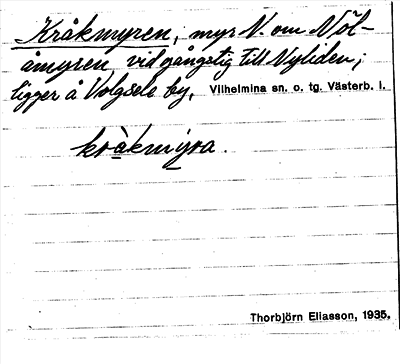 Kråkmyren, myr V. om Nöl-
åmyren vid gångstig till Nyliden;
ligger å Volgsele by, Vilhelmina sn. o. tg. Västerb. l.
kràkmýra.
Thorbjörn Eliasson, 1935.